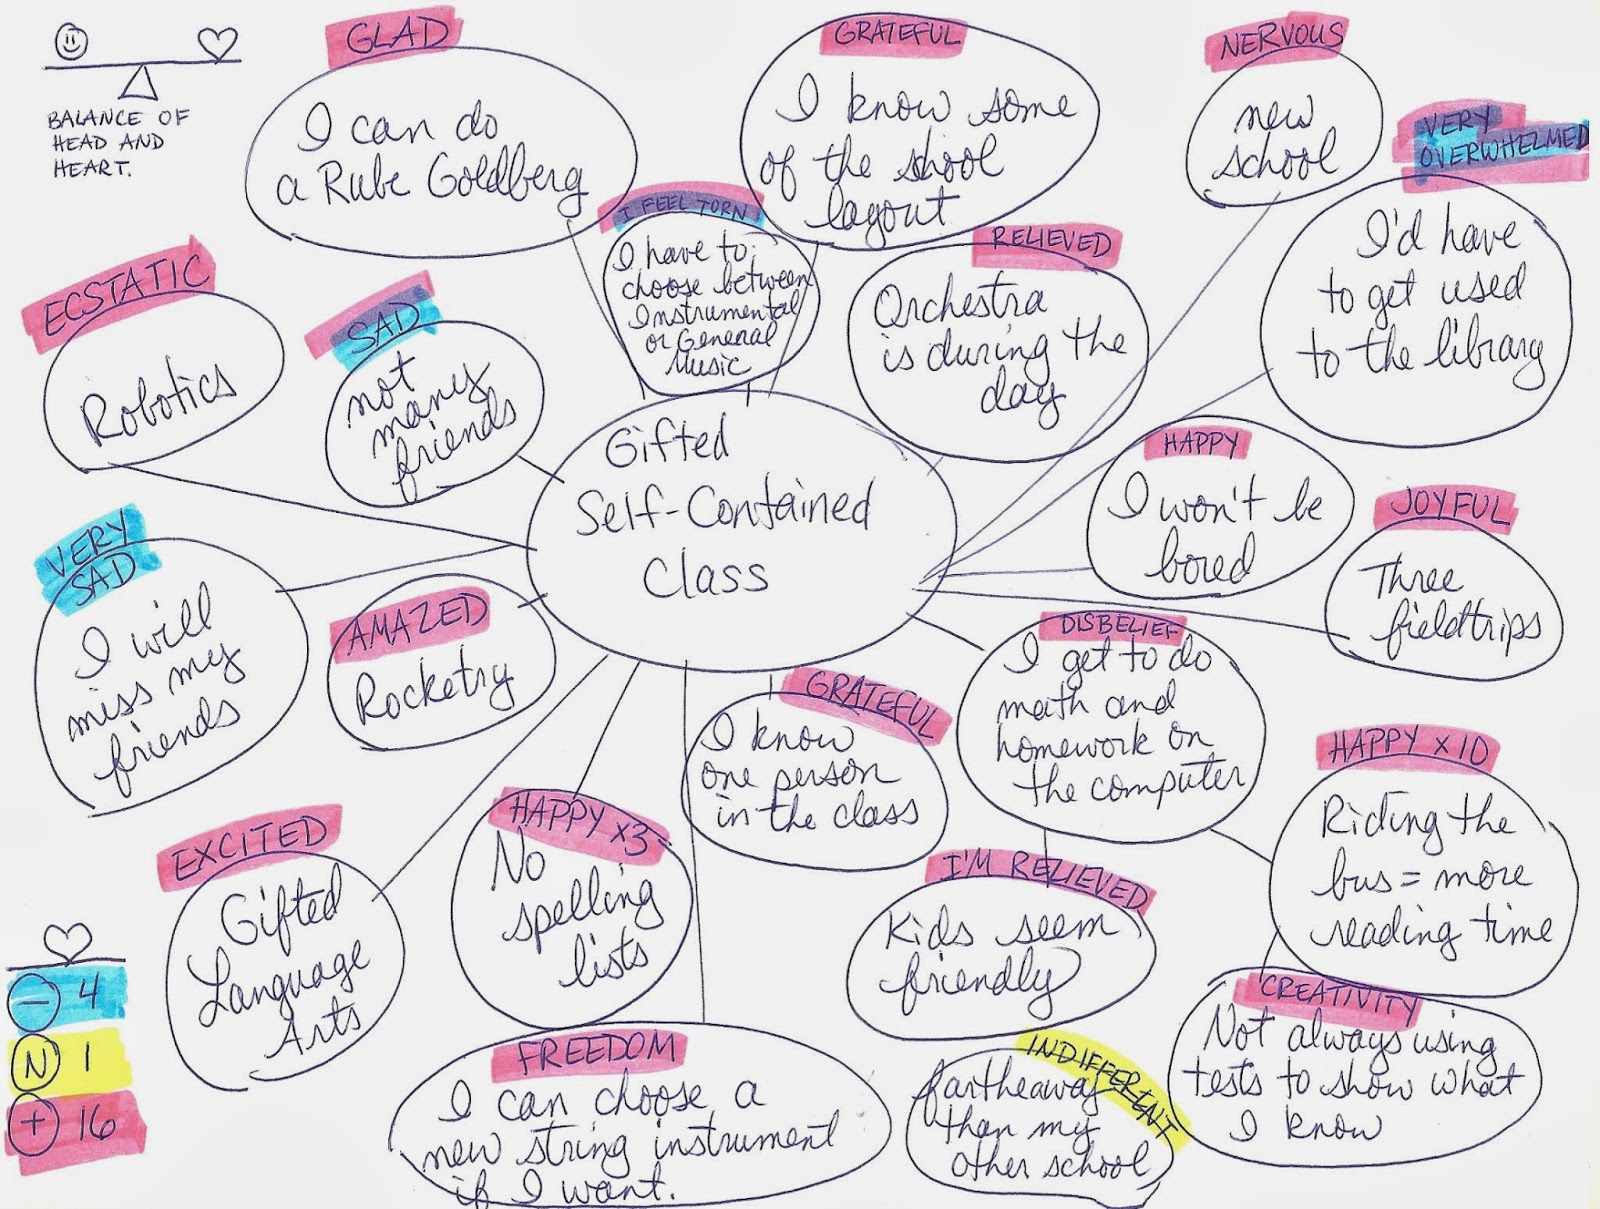 BALANCE OF
HEAD AND
HEART.
GLAD
I can do
a Rube Goldberg
GRATEFUL
I know some
of the shool
layout
NERVOUS
new
school
VERY
OVERWHELMED
I'd have
to get used
to the library
I FEEL TORN
I have to
choose between
Instrumental
or General
Music
RELIEVED
Orchestra
is during the
day
ECSTATIC
Robotics
SAD
not
many
friends
Gifted
Self-Contained
Class
HAPPY
I won't be
bored
JOYFUL
Three
fieldtrips
VERY
SAD
I will
miss my
friends
AMAZED
Rocketry
DISBELIEF
I get to do
math and
homework on
the computer
GRATEFUL
I know
one person
in the class
HAPPY x10
Riding the
bus = more
reading time
EXCITED
Gifted
Language
Arts
HAPPY x3
No
spelling
lists
I'M RELIEVED
Kids seem
friendly
CREATIVITY
Not always using
tests to show what
I know
FREEDOM
I can choose a
new string instrument
if I want.
INDIFFERENT
fartheaway
than my
other school
- 4
N 1
+ 16